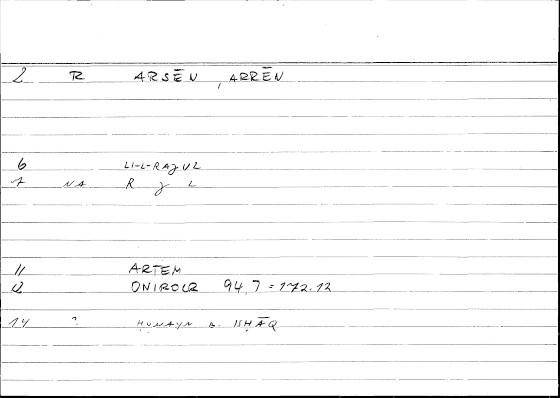 2 R ARSĒN, ARRĒN
6 LI-L-RAJUL
7 NA R J L
11 ARTEM
12 ONIROCR 94,7 = 172.12
14 ? ḤUNAYN B. ISḤĀQ